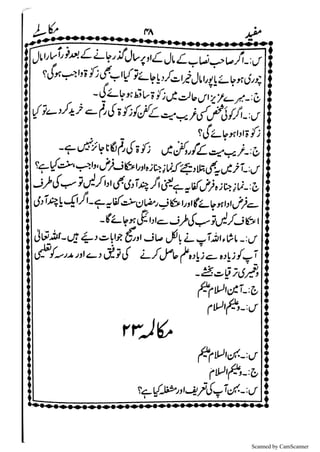 مفید ۴۸ مکالمے
س:۔ اگر صاحب نصاب کے مال کے اوپر سال گذر جانے کے بعد فوراً سارا مال
چوری ہو جائے یا پورا مال خیرات کر دیا جائے تو کیا اب بھی زکوٰۃ واجب ہوگی؟
ج:۔ میرے عزیز اس حالت میں زکوٰۃ ساقط ہو جائے گی۔
س:۔ اگر کوئی شخص کسی غریب میت کے کفن کو زکوٰۃ کی رقم سے خرید کر دے تو کیا
زکوٰۃ ادا ہو جائے گی؟
ج:۔ غریب میت کے گور و کفن میں زکوٰۃ کی رقم لگانا جائز نہیں ہے۔
س:۔ آخر میں یہ بھی بتلا دیجئے کہ نماز جنازہ اور اعتکاف فرض، واجب، سنت کیا ہے؟
ج:۔ نماز جنازہ فرض کفایہ ہے یعنی اگر چند آدمی بھی ادا کر لیں تو سب کی طرف
سے فرض ادا ہو جائے گا اور اعتکاف رمضان سنت کفایہ ہے۔ اگر ایک یا چند آدمی
اعتکاف کر لیں تو سب کی طرف سے ادائیگی ہو جائے گا۔
س:۔ ماشاء اللہ آپ نے بالکل صاف اور صحیح جوابات دیئے ہیں۔ اللہ تعالیٰ
آپ کو زیادہ سے زیادہ علم حاصل کرنے کی توفیق دے اور مدرسہ کو تعلیمی
وتعمیری ترقیات بخشے۔
ج:۔ آمین السلام علیکم
س:۔ وعلیکم السلام
مکالمہ ۲۳
س:۔ بہن السلام علیکم
ج:۔ وعلیکم السلام
س:۔ بہن آپ کی تعریف اور مشغلہ کیا ہے؟
Scanned by CamScanner